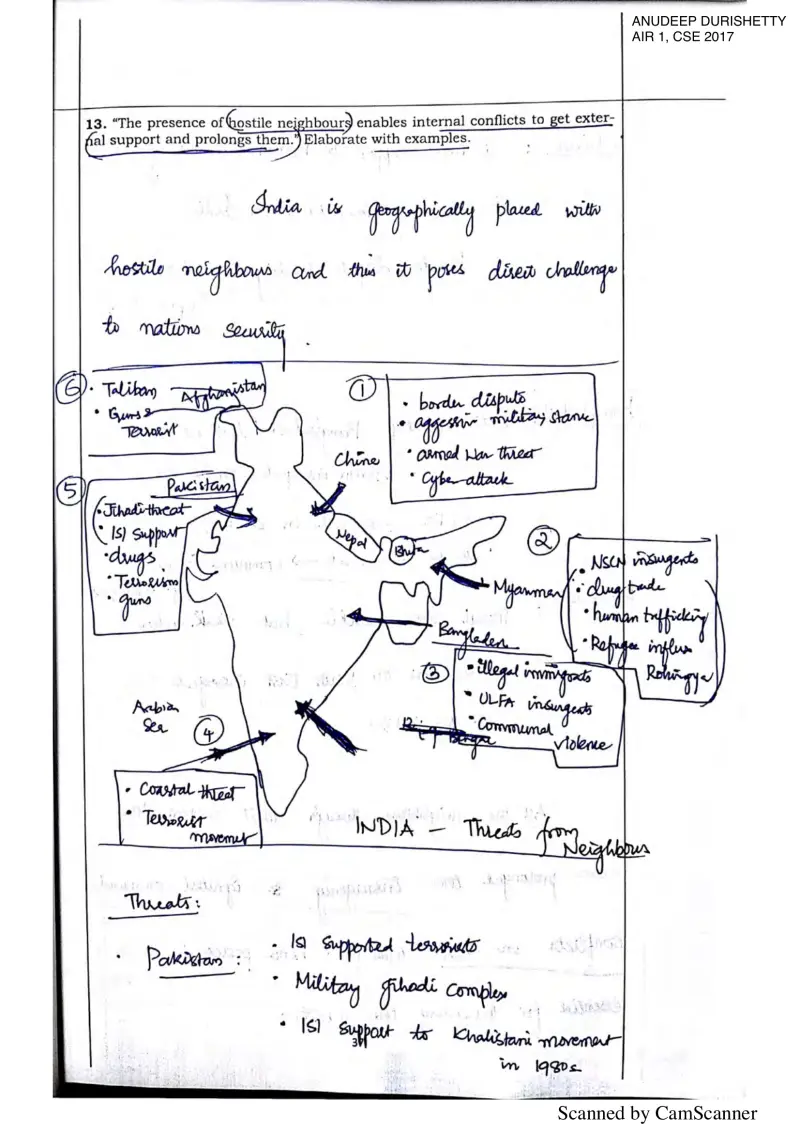 ANUDEEP DURISHETTY
AIR 1, CSE 2017
13. "The presence of hostile neighbours enables internal conflicts to get exter-
nal support and prolongs them." Elaborate with examples.
India is geographically placed with
hostile neighbours and thus it poses direct challenge
to nations security.
6
• Taliban Afghanistan
• Guns &
Terrorist
1
• border dispute
• aggessiv military stance
• armed war threat
• Cyber-attack
China
5
Pakistan
• Jihadi threat
• ISI support
• drugs
• Terrorism
• guns
Nepal
Bhutan
Myanmar
2
• NSCN insurgents
• drug trade
• human trafficking
• Refugee influx
Rohingya
Bangladesh
3
• illegal immigrats
• ULFA insurgents
• Communal
violence
Arabian
Sea
4
• Coastal threat
• Terrorist
movement
INDIA – Threats from
Neighbours
Threats:
• Pakistan :
• ISI Supported terrorists
• Military jihadi complex
• ISI support to Khalistani movement
in 1980s
Scanned by CamScanner